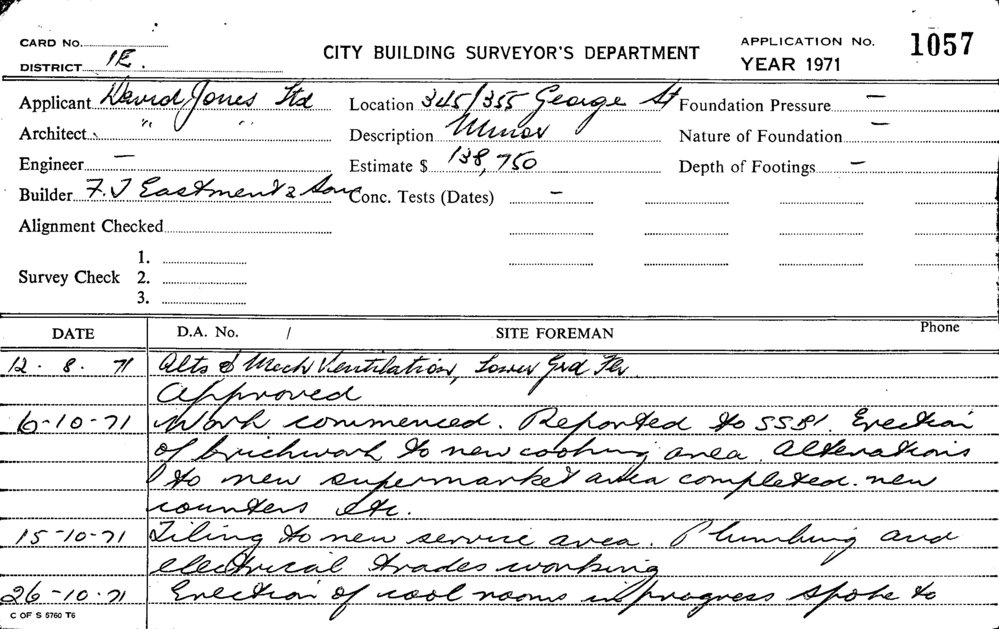 CARD No.
DISTRICT 1E.
CITY BUILDING SURVEYOR'S DEPARTMENT
APPLICATION No. 1057
YEAR 1971
Applicant David Jones Ltd Location 345/355 George St Foundation Pressure —
Architect " " Description Minor Nature of Foundation —
Engineer — Estimate $ 138,750 Depth of Footings —
Builder F. J Eastment & Sons Conc. Tests (Dates) —
Alignment Checked
Survey Check 1.
2.
3.
DATE D.A. No. / SITE FOREMAN Phone
12. 8. 71 Alts & Mech Ventilation, Lower Grd Flr
Approved
6-10-71 Work commenced. Reported to SSBI. Erection
of brickwork to new cooking area. Alterations
to new supermarket area completed. new
counters etc.
15-10-71 Tiling to new service area. Plumbing and
electrical trades working
26-10-71 Erection of cool rooms in progress spoke to
C OF S 5760 T6